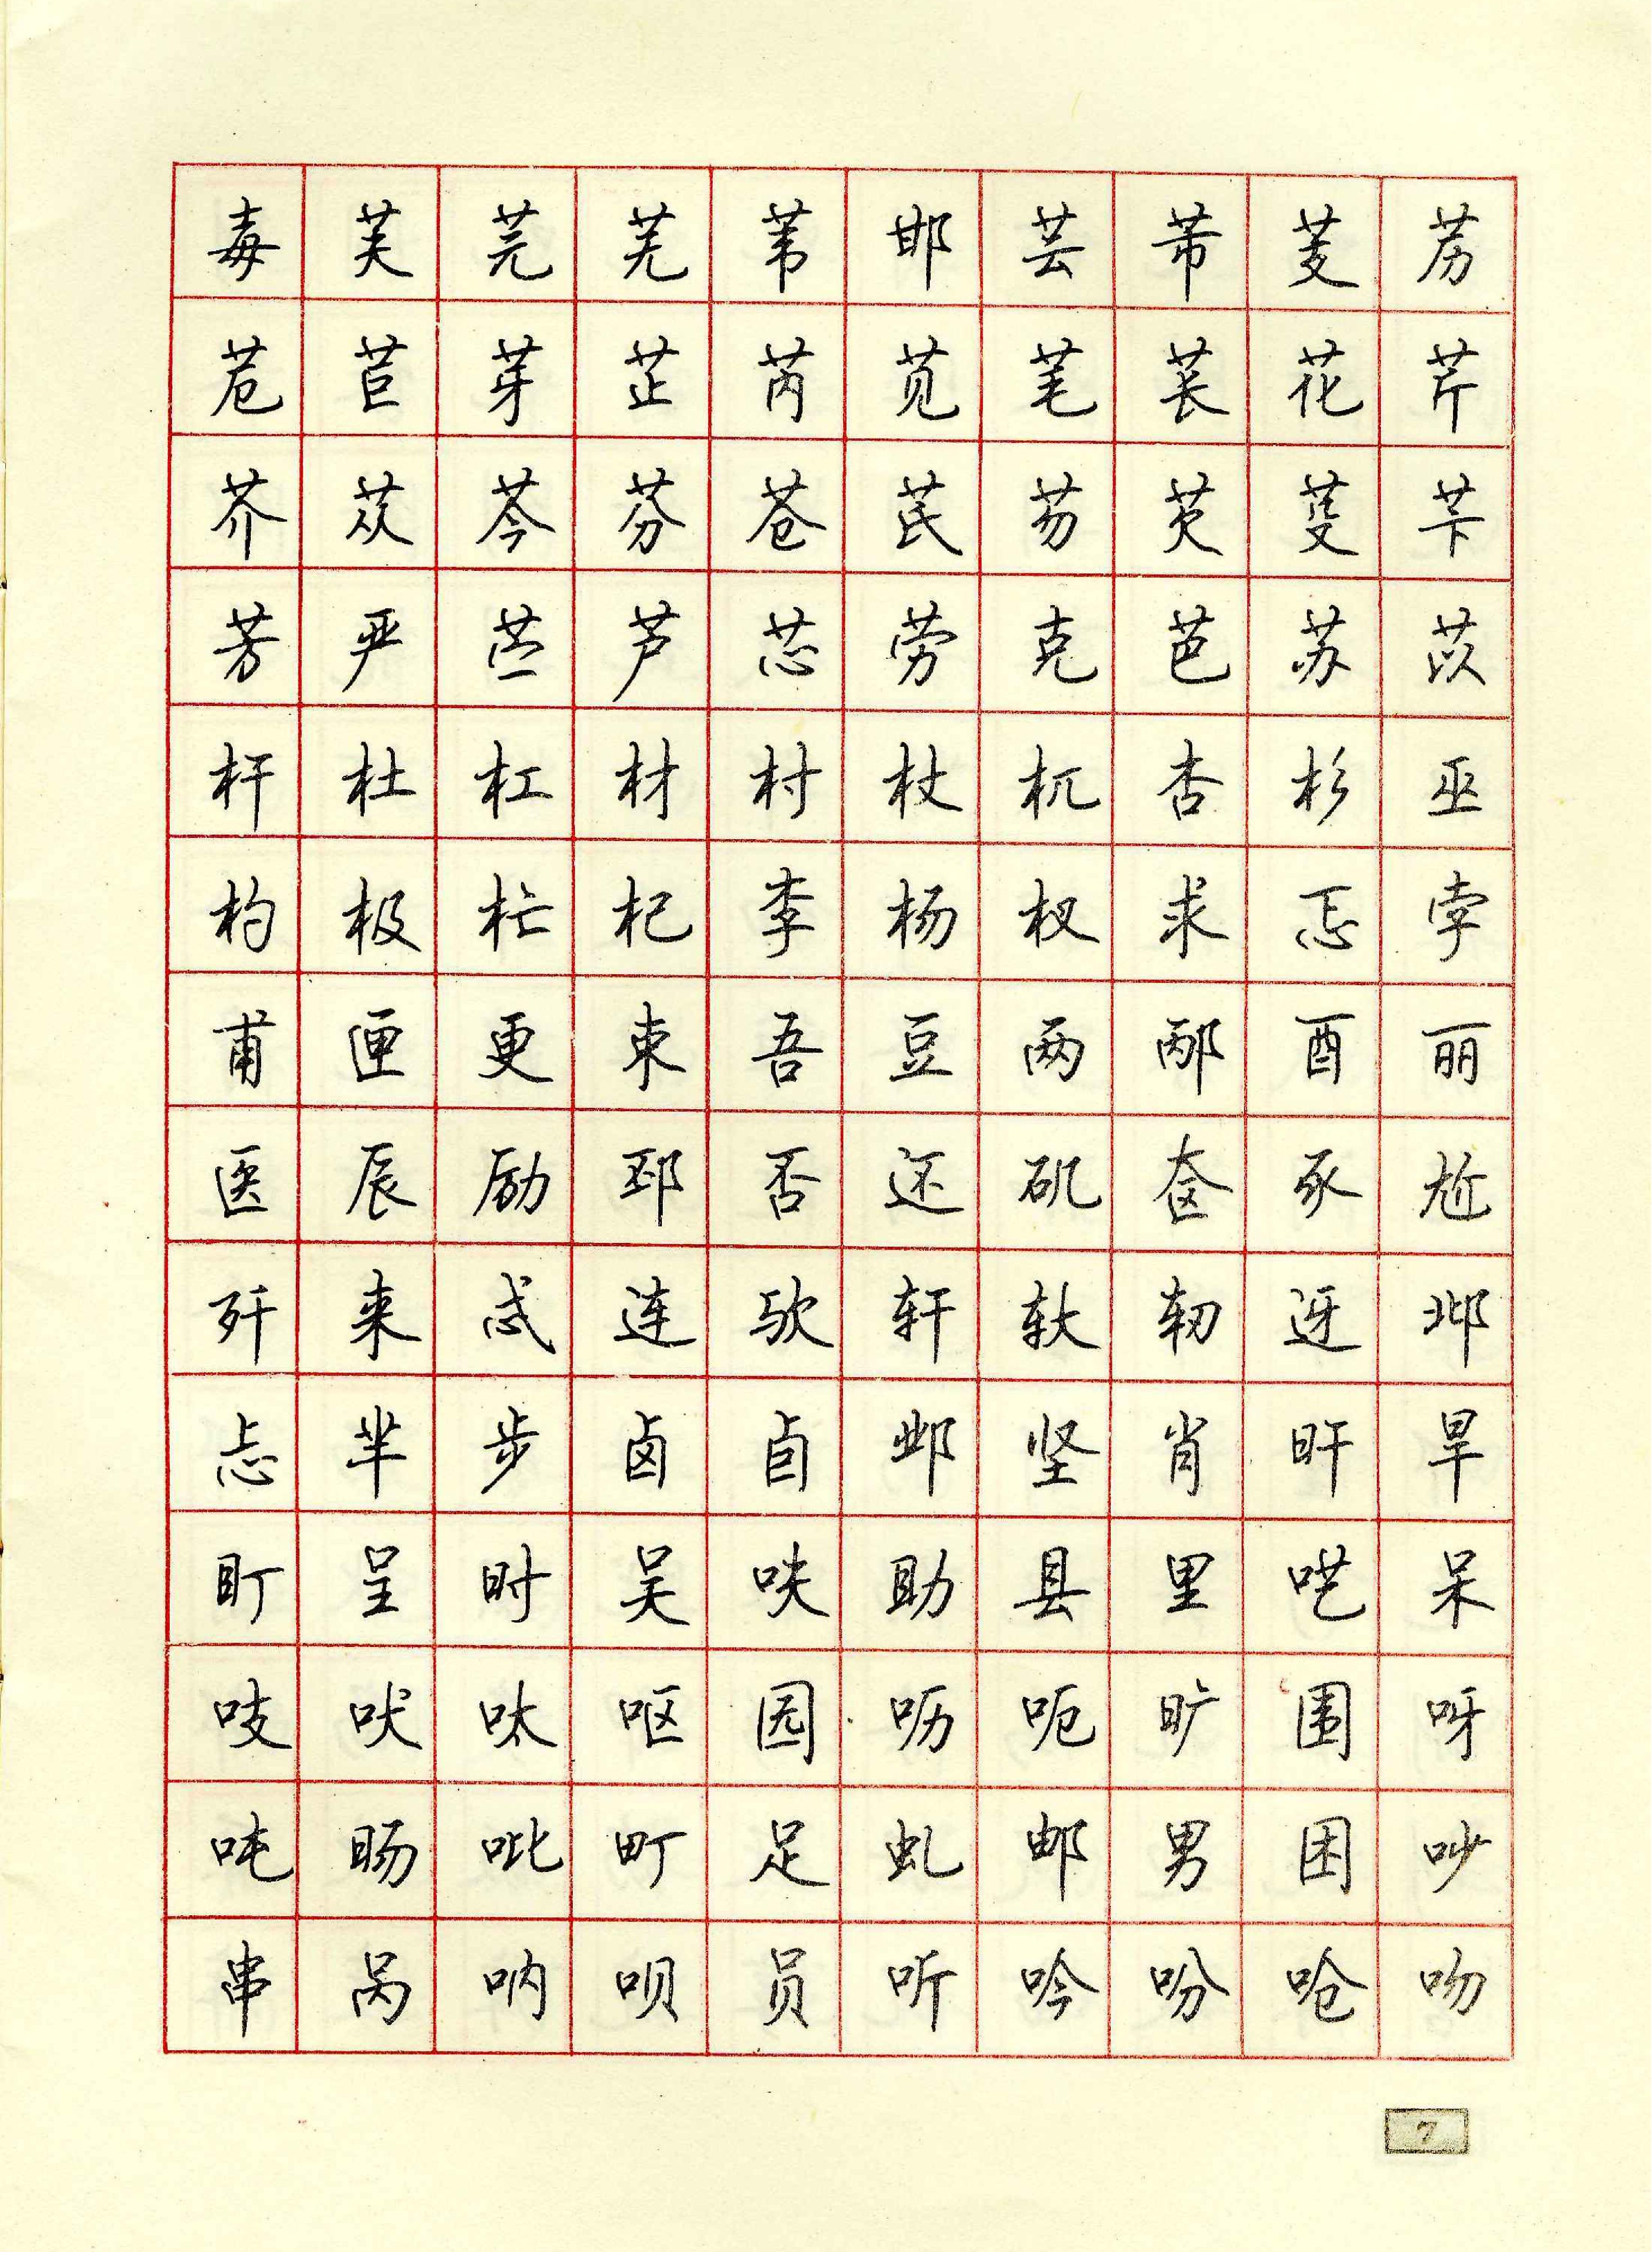 毒芙芫芜苇邯芸芾芰苈
苊苣芽芷芮苋芼苌花芹
芥苁芩芬苍芪芴芡芟苄
芳严苎芦芯劳克芭苏苡
杆杜杠材村杖杌杏杉巫
杓极杧杞李杨杈求忑孛
甫匣更束吾豆两邴酉丽
医辰励邳否还矶奁豕尬
歼来忒连欤轩轪轫迓邶
忐芈步卤卣邺坚肖旰旱
盯呈时吴呋助县里呓呆
吱吠呔呕园呖呃旷围呀
吨旸吡町足虬邮男困吵
串呙呐呗员听吟吩呛吻
7